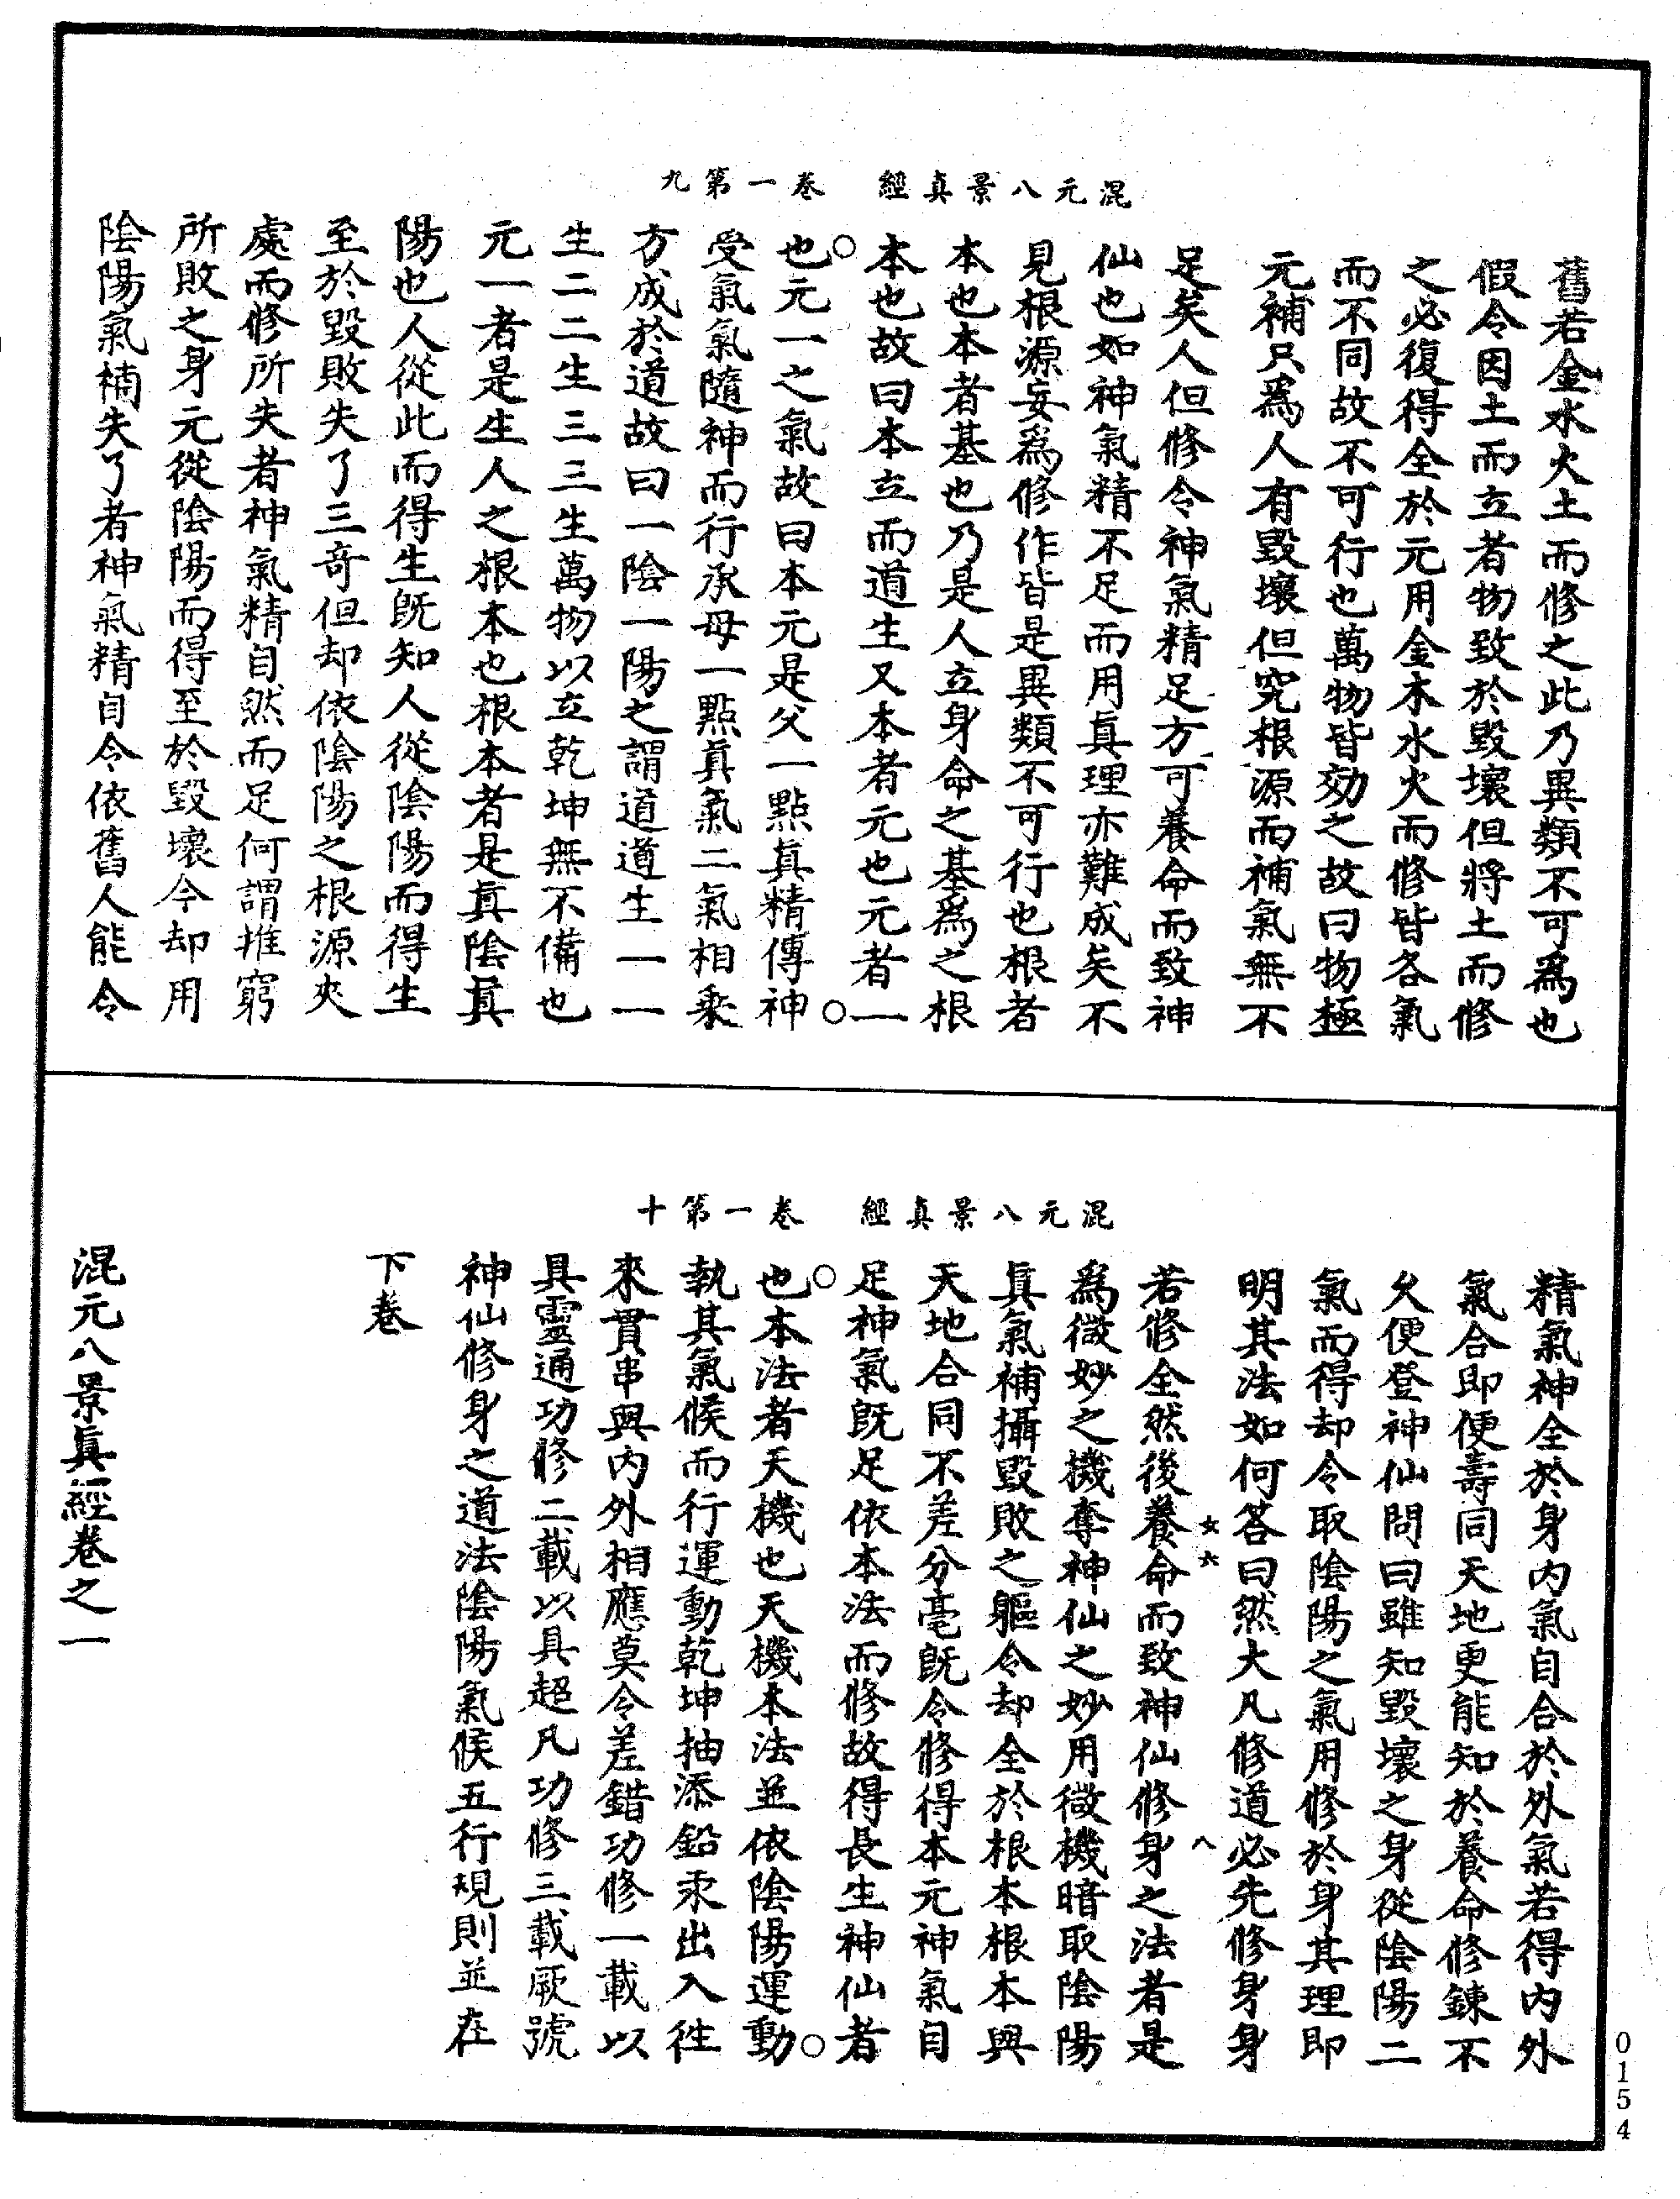 混元八景真經　卷一第九
舊若金水火土而修之此乃異類不可爲也
假令因土而立者物致於毀壞但將土而修
之必復得全於元用金木水火而修皆各氣
而不同故不可行也萬物皆効之故曰物極
元補只爲人有毀壞但究根源而補氣無不
足矣人但修令神氣精足方可養命而致神
仙也如神氣精不足而用真理亦難成矣不
見根源妄爲修作皆是異類不可行也根者
本也本者基也乃是人立身命之基爲之根
本也故曰本立而道生又本者元也元者一
也元一之氣故曰本元是父一點真精傳神
受氣氣隨神而行承母一點真氣二氣相乘
方成於道故曰一陰一陽之謂道道生一一
生二二生三三生萬物以立乾坤無不備也
元一者是生人之根本也根本者是真陰真
陽也人從此而得生旣知人從陰陽而得生
至於毀敗失了三奇但却依陰陽之根源夾
處而修所失者神氣精自然而足何謂推窮
所敗之身元從陰陽而得至於毀壞今却用
陰陽氣補失了者神氣精自令依舊人能令
混元八景真經　卷一第十
精氣神全於身內氣自合於外氣若得內外
氣合即便壽同天地更能知於養命修鍊不
久便登神仙問曰雖知毀壞之身從陰陽二
氣而得却令取陰陽之氣用修於身其理即
明其法如何答曰然大凡修道必先修身身
女六　八
若修全然後養命而致神仙修身之法者是
爲微妙之機奪神仙之妙用微機暗取陰陽
真氣補攝毀敗之軀令却全於根本根本與
天地合同不差分毫旣令修得本元神氣自
足神氣旣足依本法而修故得長生神仙者
也本法者天機也天機本法並依陰陽運動
執其氣候而行運動乾坤抽添鉛汞出入往
來貫串與內外相應莫令差錯功修一載以
具靈通功修二載以具超凡功修三載厥號
神仙修身之道法陰陽氣候五行規則並在
下卷
混元八景真經卷之一
0154